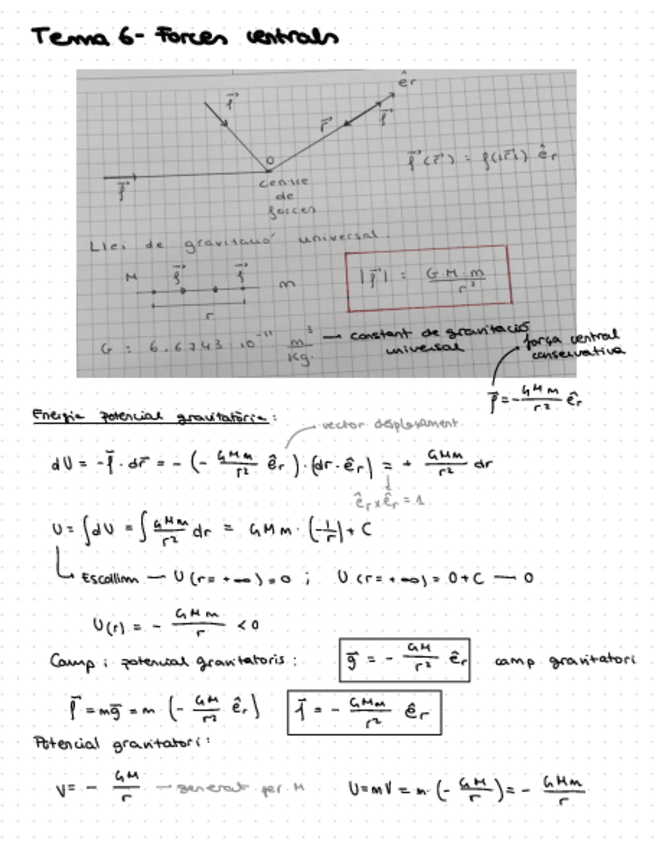 Tema 6- Forces centrals
êr
f⃗
r⃗
f⃗
O
f⃗
centre
de
forces
f⃗(r⃗) = f(|r⃗|) êr
Llei de gravitació universal.
M f⃗ f⃗ m
r
|f⃗| = G·M·m / r²
G = 6.6743·10⁻¹¹ m³/Kg. — constant de gravitació universal
força central
conservativa
f⃗ = - GMm/r² êr
Energia potencial gravitatòria:
vector desplaçament
dU = -f⃗ · dr⃗ = - (- GMm/r² êr) · (dr · êr) = + GMm/r² dr
êr x êr = 1
U = ∫dU = ∫ GMm/r² dr = GMm · (-1/r) + C
Escollim — U (r = +∞) = 0 ; U (r = +∞) = 0 + C — 0
U(r) = - GMm/r < 0
Camp i potencial gravitatoris: g⃗ = - GM/r² êr camp gravitatori
f⃗ = mg⃗ = m (- GM/r² êr) f⃗ = - GMm/r² êr
Potencial gravitatori:
V = - GM/r — generat per M U = mV = m · (- GM/r) = - GMm/r